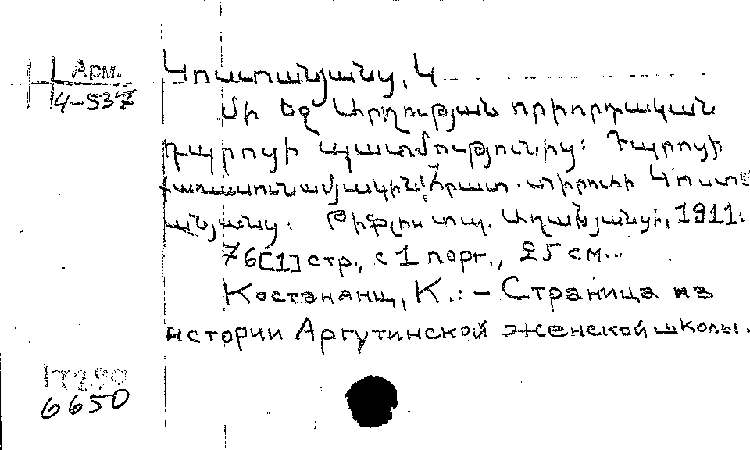 Арм.
4-537
Կոստանյանց, Կ
Մի էջ Արղության օրիորդական
դպրոցի պատմությունից: Դպրոցի
Կոստ
անյանց: Թիֆլիս տպ. Աղանյանցի, 1911.
76[1] стр., с 1 порт., 25 см.
Костанянц, К.: – Страница из
истории Аргутинской женской школы.
6650